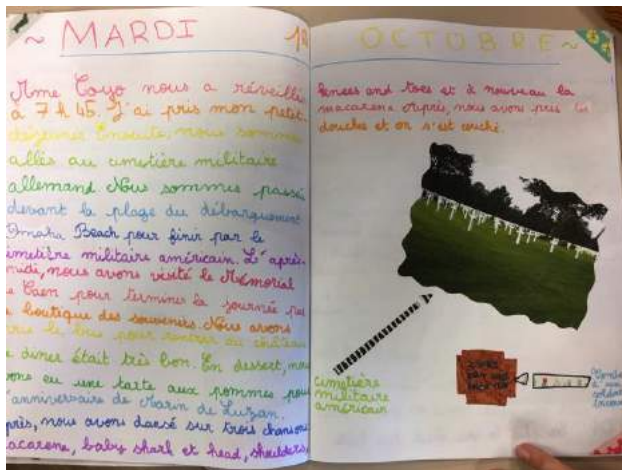 ~ MARDI 18
Mme Coyo nous a réveillé
à 7 h 45. J'ai pris mon petit
déjeuner Ensuite, nous sommes
allés au cimetière militaire
allemand. Nous sommes passés
devant la plage du débarquement
Omaha Beach pour finir par le
cimetière militaire américain. L'après-
midi, nous avons visité le Mémorial
de Caen pour terminer la journée par
la boutique des souvenirs. Nous avons
pris le bus pour rentrer au château
Le dîner était très bon. En dessert, nous
avons eu une tarte aux pommes pour
l'anniversaire de Marin de Luzan.
Après, nous avons dansé sur trois chansons
macarena, baby shark et head, shoulders,
OCTOBRE ~
knees and toes et à nouveau la
macarena Après, nous avons pris les
douches et on s'est couché.
cimetière
militaire
américain
Tombe
d'un
soldat
inconnu